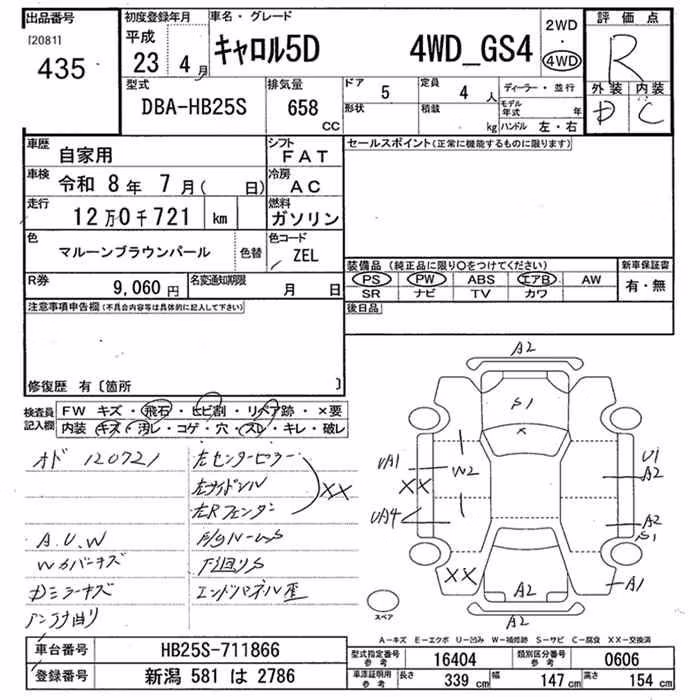 出品番号
[2081]
435
初度登録年月
平成
23 4月
車名・グレード
キャロル5D 4WD_GS4
2WD
・
4WD
評価点
R
外装 内装
D C
型式
DBA-HB25S
排気量
658
CC
ドア 5 定員 4人
形状 積載 kg
ディーラー・並行
モデル年式 年
ハンドル 左・右
車歴 自家用
シフト FAT
車検 令和 8年 7月( 日)
冷房 AC
走行 12万0千721 km
燃料 ガソリン
色 マルーンブラウンパール 色替
色コード ZEL
R券 9,060円
名変通知期限 月 日
セールスポイント(正常に機能するものに限ります)
装備品 (純正品に限り○をつけてください)
新車保証書
PS PW ABS エアB AW
SR ナビ TV カワ
有・無
後日品
注意事項申告欄(不具合内容等は具体的に記入して下さい)
修復歴 有〔箇所 〕
検査員記入欄
FW キズ・飛石・ヒビ割・リペア跡・×要
内装 キズ・汚レ・コゲ・穴・スレ・キレ・破レ
オド 120721
左センターピラー
左サイドシル
左Rフェンダー
XX
A.U.W
下回りS
Dミラーキズ
エンドパネル歪
アンテナ曲り
A2
S1
×
UA1
XX
W2
UA4
XX
U1
A2
A2
S1
A1
A2
A2
スペア
A-キズ E-エクボ U-凹み W-補修跡 S-サビ C-腐食 XX-交換済
車台番号 HB25S-711866
登録番号 新潟 581 は 2786
型式指定番号 参考 16404
類別区分番号 参考 0606
車庫証明用 参考 長さ 339 cm 幅 147 cm 高さ 154 cm